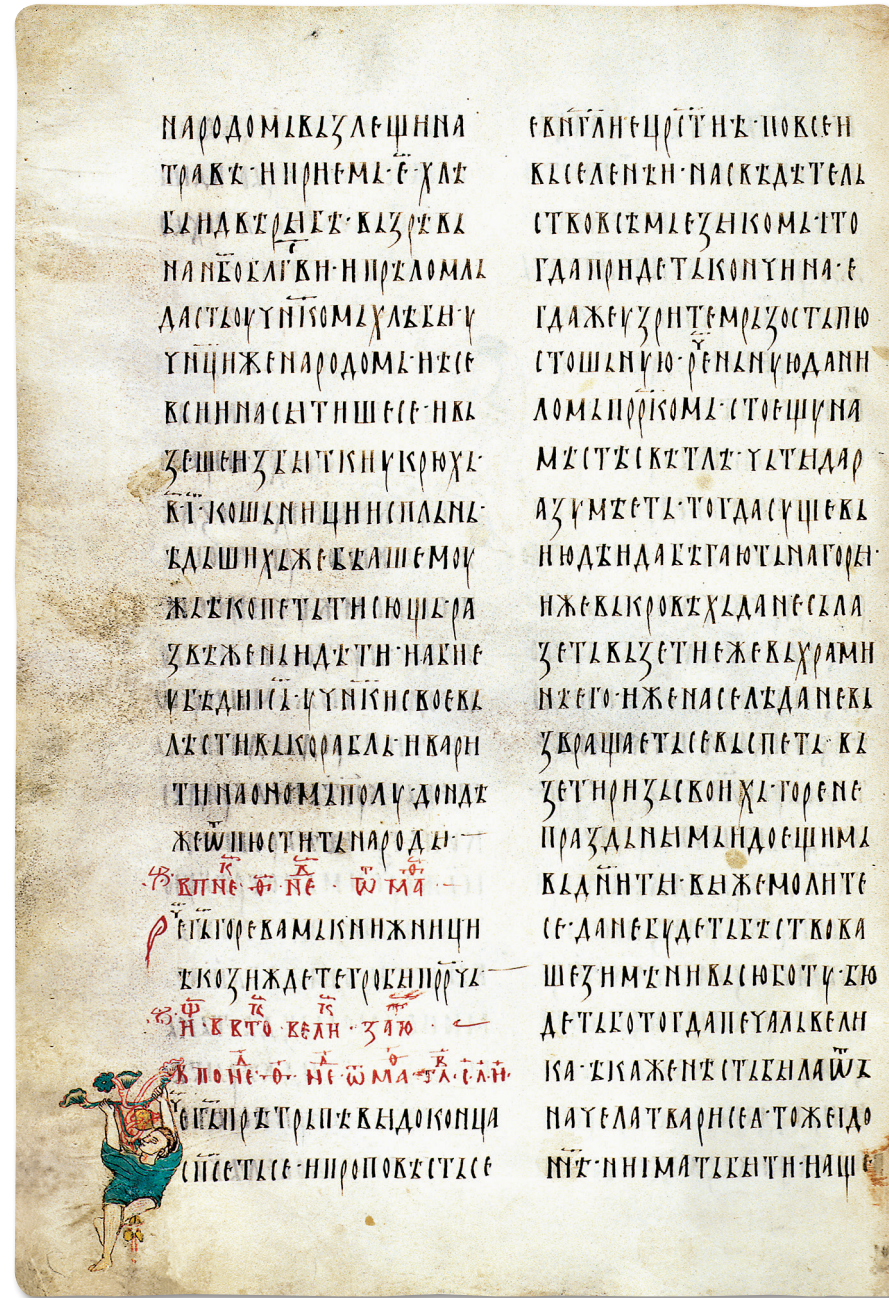 народомьвьꙁлещина
травѣ·иприемь·е҃·хлѣ
бьидвѣрыбѣ·вьꙁрѣвь
нанб҃облг҃ви·ипрѣломль
дастьоуч҃нкомьхлѣбы·ѵ
чн҃циженародомь·иѣсе
всиинаситишесе·ивь
ꙁешеиꙁбытькиѵкрюхь·
в҃ı·кошьницииспльнь·
ѣдьшихьжебѣашемоѵ
жьѣкопетьтисющьра
ꙁвѣженьидѣти·иабие
ѵбѣдиıс҃ьѵчн҃кисвоевь
лѣстивькорабль·ивари
тинаономьполѵ·дондѣ
жеѿпюститьнароды
вп҃не·ѳ҃·не҃ ѿ ма҃
рег҃ьгоревамькнижници
ѣкоꙁиждетегробыпр҃рчь
и·ввто вели·ꙁаю
впоне·ѳ·не·ѿма·гл·
ег҃ьпрѣтрьпѣвыдоконца
сп҃сетьсе·ипроповѣстьсе
еван҃глиецрс҃тиѣ·повсеи
вьселенѣи·насвѣдѣтель
ствовсѣмьеꙁыкомь·ıто
гдапридетькончина·е
гдажеѵꙁритемрьꙁостьпю
стошьнѵю·реч҃ьнѵюдани
ломьпр҃ркомь·стоещѵна
мѣстѣсвѣтлѣ·чьтыдар
аꙁѵмѣеть·тогдасѵщевь
июдѣидабѣгаютьнагоры·
ижевькровѣхьданесьла
ꙁетьвьꙁетиежевьхрами
нѣего·иженаселѣданевь
ꙁвращаетьсевьспеть вь
ꙁетириꙁьсвоихь·горене
праꙁдьнымьидоещимь
вьдн҃иты·выжемолите
се·данебѵдетьбѣствова
шеꙁимѣнивьсюботѵ·бю
детьботогдапечальвели
ка·ѣкаженѣстьбылаѿь
начелатварисеа·тожеıдо
нн҃ѣ·ниıматьбыти·аще